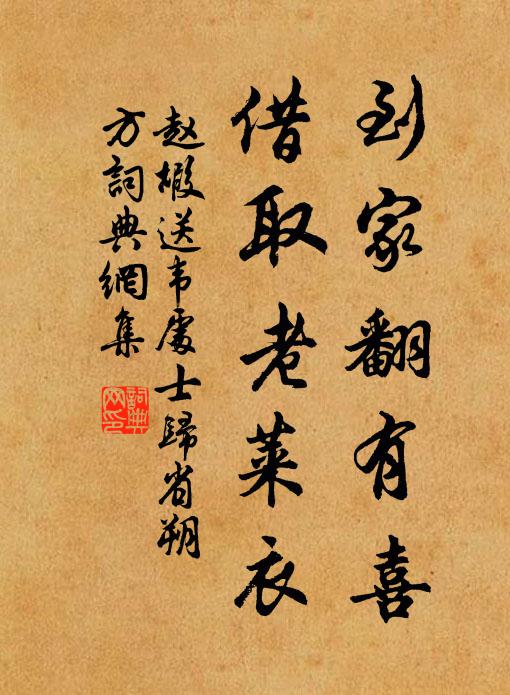 到家翻有喜
借取老莱衣
赵嘏送韦處士歸省朔
方詞典網集
詞典
网印